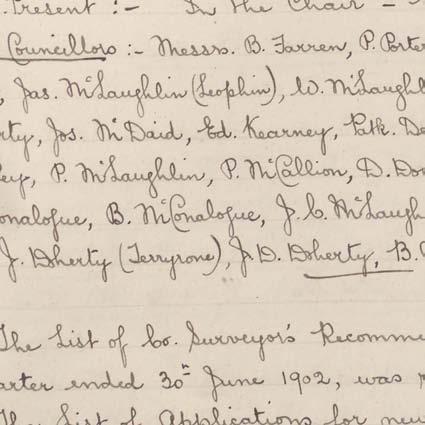 Present :- In the Chair -
Councillors :- Messrs. B. Farren, P. Porte
, Jas. McLaughlin (Leophin), W. McLaughl
rty, Jos. McDaid, Ed. Kearney, Patk. De
ey, P. McLaughlin, P. McCallion, D. Do
onalogue, B. McConalogue, J. C. McLaugh
J. Doherty (Terryrone), J. D. Doherty, B.
The List of Co. Surveyor's Recomme
arter ended 30th June 1902, was
The List of Applications for new